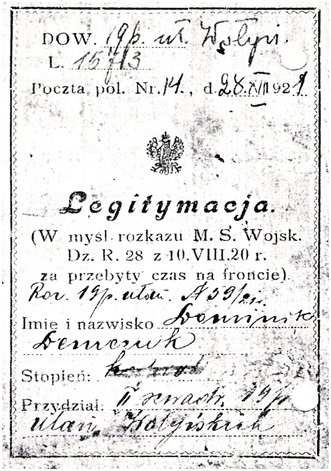 DOW. 19p. uł. Wołyń.
L. 1573
Poczta pol. Nr. 14., d. 28 XII 1921
Legitymacja.
(W myśl rozkazu M. S. Wojsk.
Dz. R. 28 z 10.VIII.20 r.
za przebyty czas na froncie).
Roz. 19 p. ułan.
Imię i nazwisko Dominik
Demczuk
Stopień:
Przydział: II szwadr. 19 p.
ułan. Wołyńskich